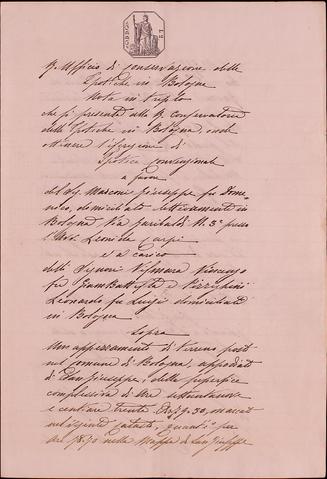 R. Ufficio di conservazione delle
Ipoteche in Bologna
Nota in triplo
che si presenta alla R. conservatoria
delle Ipoteche in Bologna, onde
ottenere l'iscrizione di
Ipoteca Convenzionale
a favore
del Sig. Marconi Giuseppe fu Dome-
nico, domiciliato elettivamente in
Bologna Via Garibaldi N. 3 presso
l'Avv. Leonida Carpi
e a carico
delli Signori Vignara Vincenzo
fu Giambattista e
Leonardo fu Luigi domiciliati
in Bologna
Sopra
Un appezzamento di terreno posto
nel comune di Bologna, appodiato
di San Giuseppe, della superficie
complessiva di Are
e centiare trenta
nel vigente Catasto,
nella Mappa di San Giuseppe